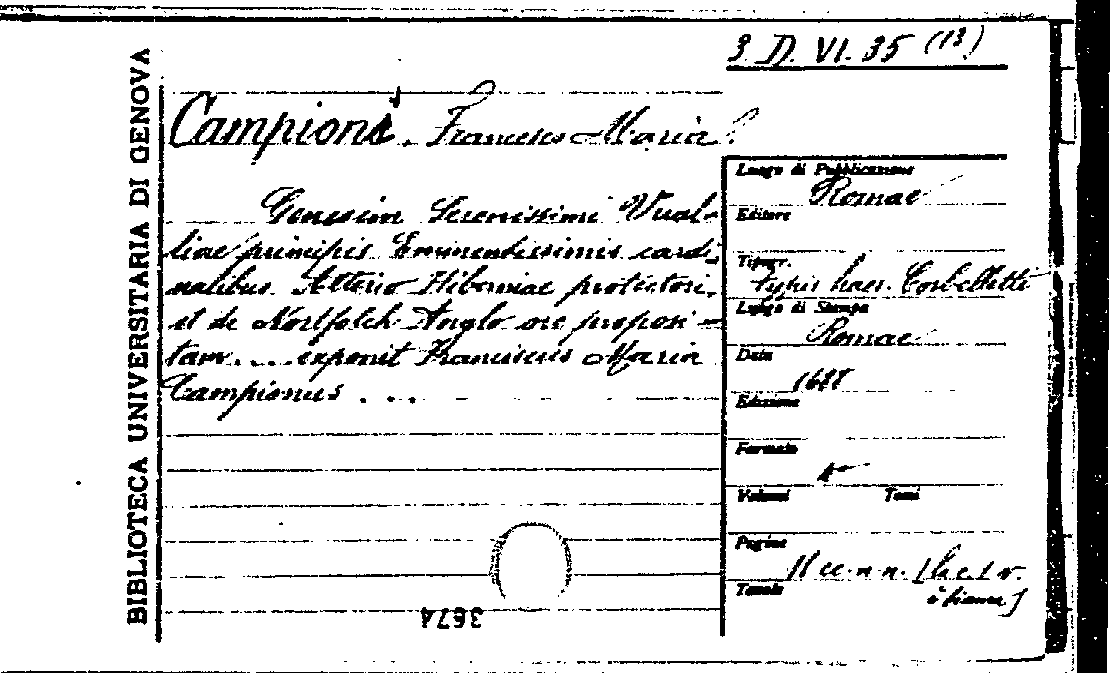 BIBLIOTECA UNIVERSITARIA DI GENOVA
3. D. VI. 35 (13)
Campioni, Francesco Maria
Genesim Serenissimi Vual-
liae principis Eminentissimis cardi-
nalibus Alterio Hiberniae protectori,
et de Nortfolch Anglo ore proposi-
tam... exponit Franciscus Maria
Campionus ...
Luogo di Pubblicazione
Romae
Editore
Tipogr.
typis haer. Corbelletti
Luogo di Stampa
Romae
Data
1688
Edizione
Formato
4°
Volumi Tomi
Pagine
11 cc. n n. [la c. 1 v.
Tavole
è bianca]
3674